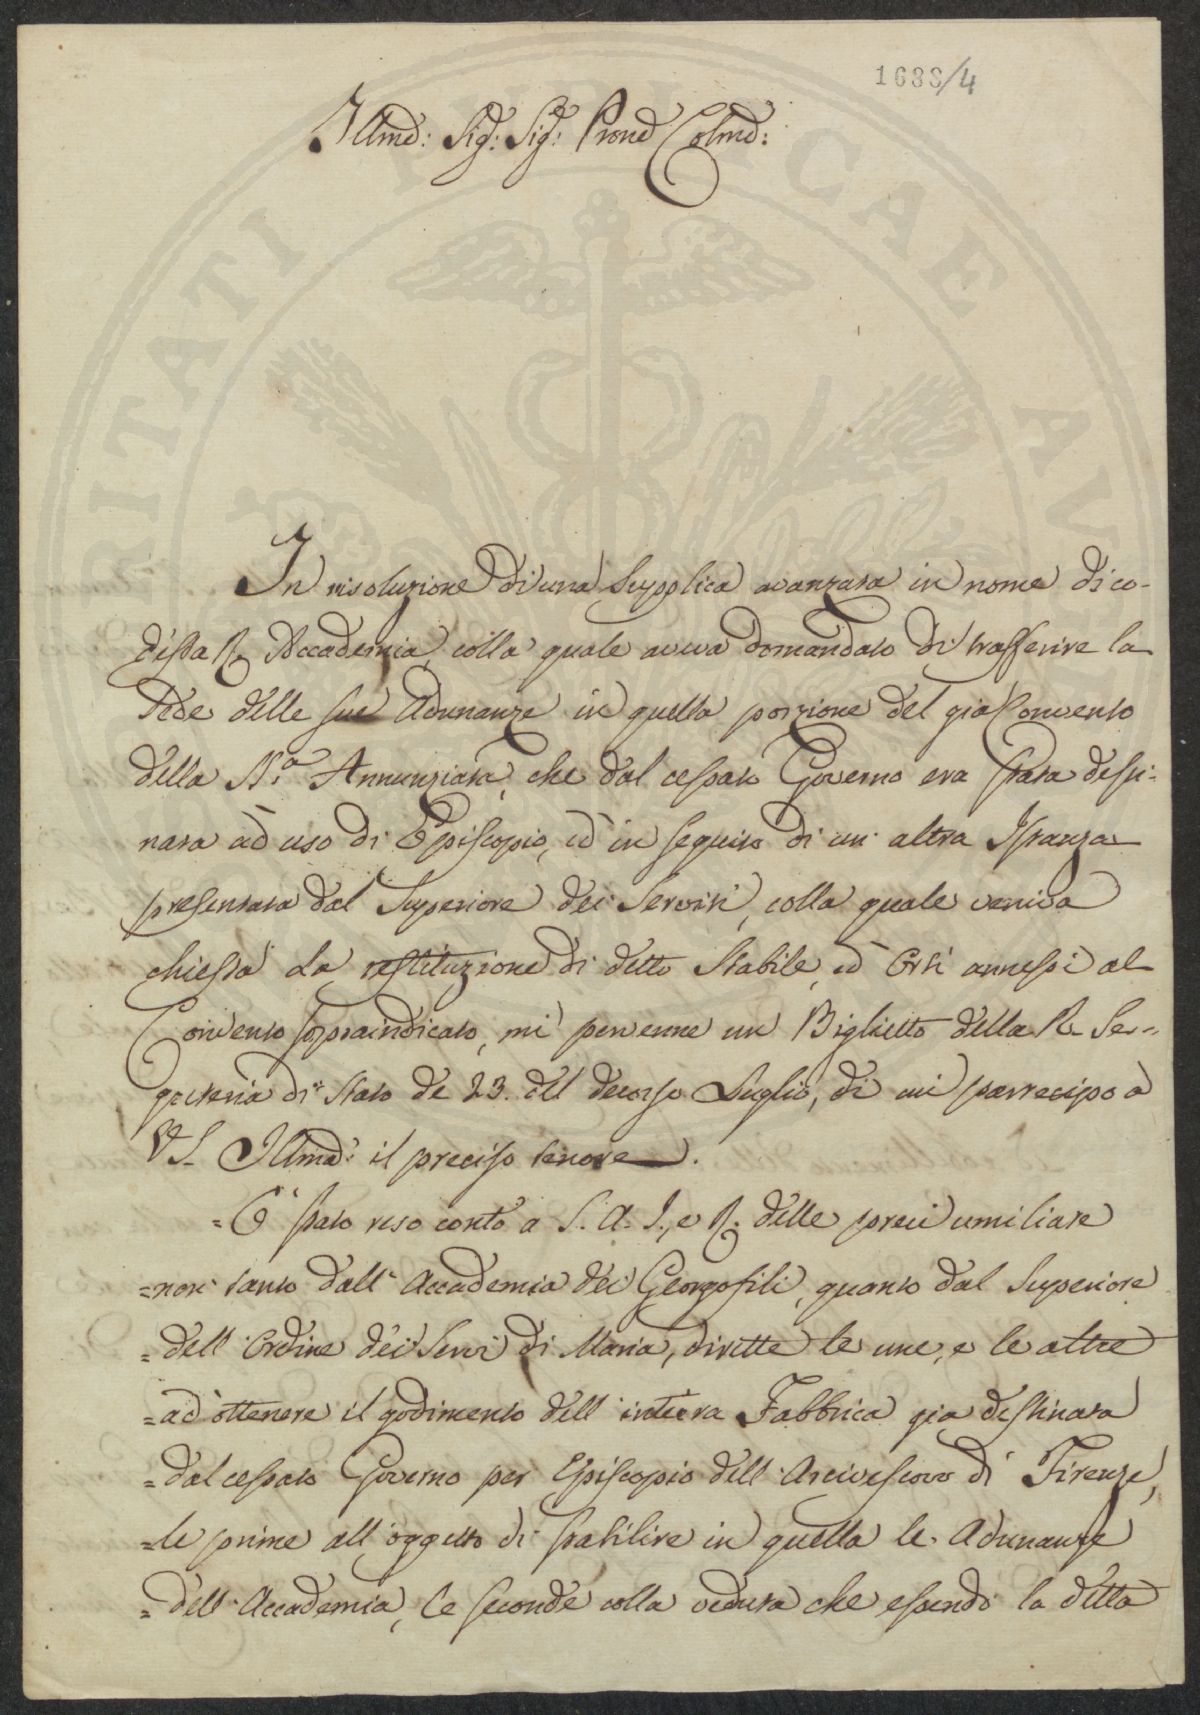 1638/4
Illmo: Sig: Sig: Prone Colmo:
In risoluzione di una Supplica avanzata in nome di co-
desta R. Accademia, colla quale aveva domandato di trasferire la
Sede delle sue Adunanze in quella porzione del già Convento
della SS.a Annunziata, che dal cessato Governo era stata desti-
nata ad uso di Episcopio, ed in seguito di un' altra Istanza
presentata dal Superiore dei Serviti, colla quale veniva
chiesta la restituzione di detto Stabile, ed Orti annessi al
Convento sopraindicato, mi pervenne un Biglietto della R. Se-
greteria di Stato de 23. del decorso Luglio, di cui partecipo a
VS. Illma: il preciso tenore.
= È stato reso conto a S. A. I., e R. delle preci umiliate
= non tanto dall' Accademia dei Georgofili, quanto dal Superiore
= dell' Ordine dei Servi di Maria, dirette le une, e le altre
= ad ottenere il godimento dell' intiera Fabbrica già destinata
= dal cessato Governo per Episcopio dell' Arcivescovo di Firenze,
= le prime all' oggetto di stabilire in quella le Adunanze
= dell' Accademia, le seconde colla veduta che essendo la detta
RITATI PUBLICAE AU